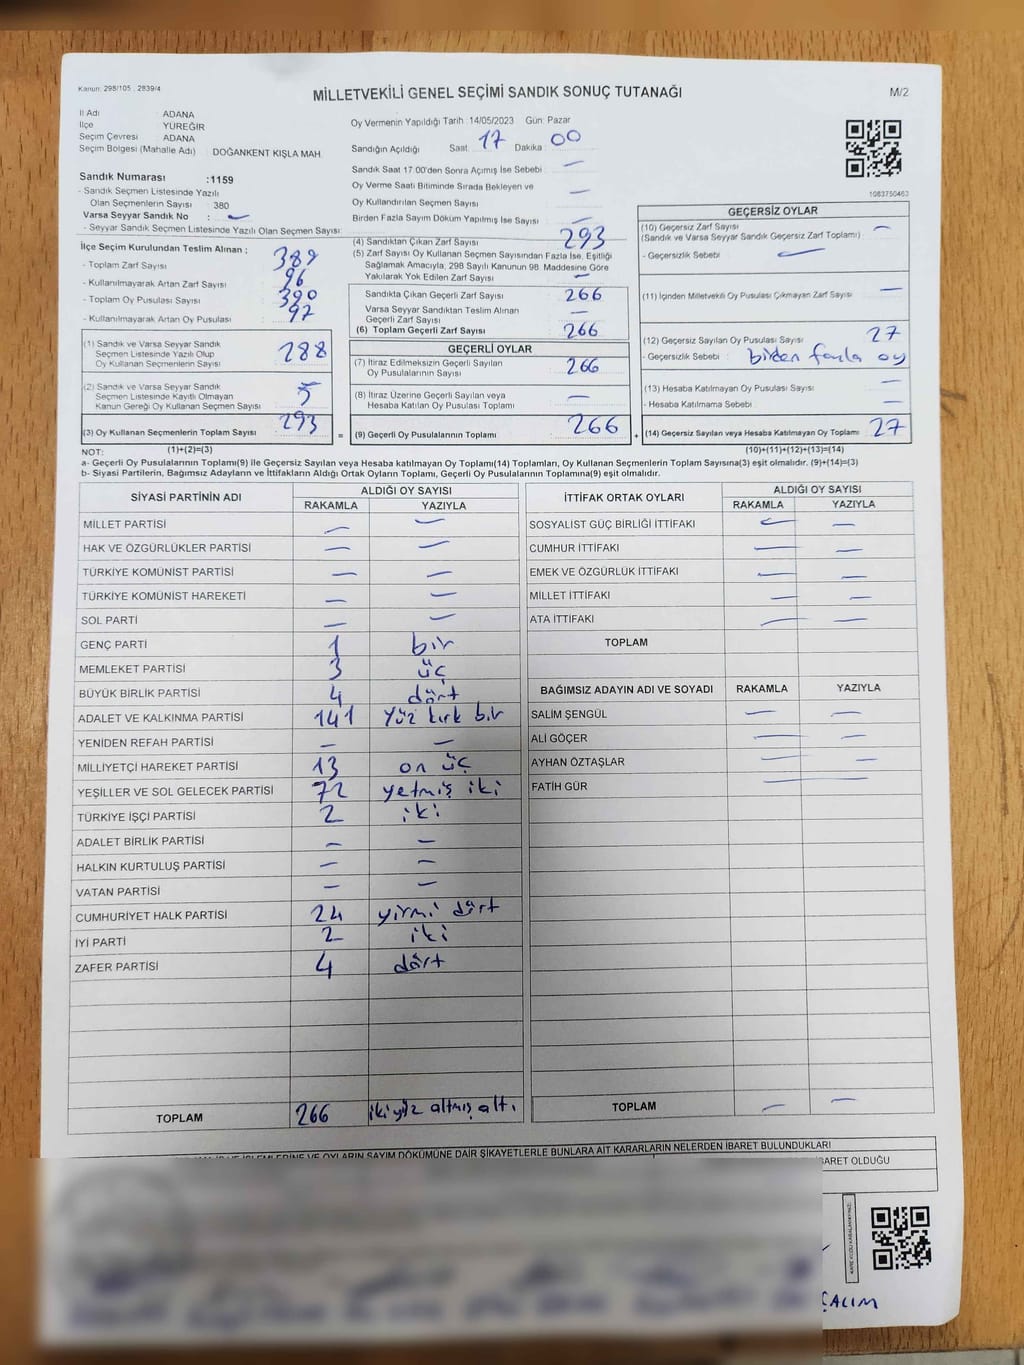 Kanun: 298/105 . 2839/4
MİLLETVEKİLİ GENEL SEÇİMİ SANDIK SONUÇ TUTANAĞI
M/2
İl Adı : ADANA
İlçe YÜREĞİR
Seçim Çevresi : ADANA
Seçim Bölgesi (Mahalle Adı) : DOĞANKENT KIŞLA MAH.
Oy Vermenin Yapıldığı Tarih :14/05/2023 Gün: Pazar
Sandığın Açıldığı Saat: 17 Dakika: 00
Sandık Numarası :1159
- Sandık Seçmen Listesinde Yazılı
Olan Seçmenlerin Sayısı : 380
Varsa Seyyar Sandık No : -
- Seyyar Sandık Seçmen Listesinde Yazılı Olan Seçmen Sayısı:
Sandık Saat 17.00'den Sonra Açılmış İse Sebebi : -
Oy Verme Saati Bitiminde Sırada Bekleyen ve
Oy Kullandırılan Seçmen Sayısı : -
Birden Fazla Sayım Döküm Yapılmış İse Sayısı : -
1083750463
İlçe Seçim Kurulundan Teslim Alınan ;
- Toplam Zarf Sayısı : 389
- Kullanılmayarak Artan Zarf Sayısı : 96
- Toplam Oy Pusulası Sayısı : 390
- Kullanılmayarak Artan Oy Pusulası : 97
(1) Sandık ve Varsa Seyyar Sandık
Seçmen Listesinde Yazılı Olup
Oy Kullanan Seçmenlerin Sayısı : 288
(2) Sandık ve Varsa Seyyar Sandık
Seçmen Listesinde Kayıtlı Olmayan
Kanun Gereği Oy Kullanan Seçmen Sayısı : 5
(3) Oy Kullanan Seçmenlerin Toplam Sayısı : 293
(4) Sandıktan Çıkan Zarf Sayısı : 293
(5) Zarf Sayısı Oy Kullanan Seçmen Sayısından Fazla İse, Eşitliği
Sağlamak Amacıyla, 298 Sayılı Kanunun 98. Maddesine Göre
Yakılarak Yok Edilen Zarf Sayısı : -
Sandıkta Çıkan Geçerli Zarf Sayısı : 266
Varsa Seyyar Sandıktan Teslim Alınan
Geçerli Zarf Sayısı : -
(6) Toplam Geçerli Zarf Sayısı : 266
GEÇERLİ OYLAR
(7) İtiraz Edilmeksizin Geçerli Sayılan
Oy Pusulalarının Sayısı : 266
(8) İtiraz Üzerine Geçerli Sayılan veya
Hesaba Katılan Oy Pusulası Toplamı : -
= (9) Geçerli Oy Pusulalarının Toplamı : 266
GEÇERSİZ OYLAR
(10) Geçersiz Zarf Sayısı : -
(Sandık ve Varsa Seyyar Sandık Geçersiz Zarf Toplamı)
- Geçersizlik Sebebi : -
(11) İçinden Milletvekili Oy Pusulası Çıkmayan Zarf Sayısı : -
(12) Geçersiz Sayılan Oy Pusulası Sayısı : 27
- Geçersizlik Sebebi : birden fazla oy
(13) Hesaba Katılmayan Oy Pusulası Sayısı : -
- Hesaba Katılmama Sebebi : -
+ (14) Geçersiz Sayılan veya Hesaba Katılmayan Oy Toplamı : 27
NOT: (1)+(2)=(3) (10)+(11)+(12)+(13)=(14)
a- Geçerli Oy Pusulalarının Toplamı(9) ile Geçersiz Sayılan veya Hesaba katılmayan Oy Toplamı(14) Toplamları, Oy Kullanan Seçmenlerin Toplam Sayısına(3) eşit olmalıdır. (9)+(14)=(3)
b- Siyasi Partilerin, Bağımsız Adayların ve İttifakların Aldığı Ortak Oyların Toplamı, Geçerli Oy Pusulalarının Toplamına(9) eşit olmalıdır.
SİYASİ PARTİNİN ADI ALDIĞI OY SAYISI
RAKAMLA YAZIYLA
MİLLET PARTİSİ - -
HAK VE ÖZGÜRLÜKLER PARTİSİ - -
TÜRKİYE KOMÜNİST PARTİSİ - -
TÜRKİYE KOMÜNİST HAREKETİ - -
SOL PARTİ - -
GENÇ PARTİ 1 bir
MEMLEKET PARTİSİ 3 üç
BÜYÜK BİRLİK PARTİSİ 4 dört
ADALET VE KALKINMA PARTİSİ 141 Yüz kırk bir
YENİDEN REFAH PARTİSİ - -
MİLLİYETÇİ HAREKET PARTİSİ 13 on üç
YEŞİLLER VE SOL GELECEK PARTİSİ 72 yetmiş iki
TÜRKİYE İŞÇİ PARTİSİ 2 iki
ADALET BİRLİK PARTİSİ - -
HALKIN KURTULUŞ PARTİSİ - -
VATAN PARTİSİ - -
CUMHURİYET HALK PARTİSİ 24 yirmi dört
İYİ PARTİ 2 iki
ZAFER PARTİSİ 4 dört
TOPLAM 266 iki yüz altmış altı
İTTİFAK ORTAK OYLARI ALDIĞI OY SAYISI
RAKAMLA YAZIYLA
SOSYALİST GÜÇ BİRLİĞİ İTTİFAKI - -
CUMHUR İTTİFAKI - -
EMEK VE ÖZGÜRLÜK İTTİFAKI - -
MİLLET İTTİFAKI - -
ATA İTTİFAKI - -
TOPLAM
BAĞIMSIZ ADAYIN ADI VE SOYADI RAKAMLA YAZIYLA
SALİM ŞENGÜL - -
ALİ GÖÇER - -
AYHAN ÖZTAŞLAR - -
FATİH GÜR - -
TOPLAM - -
İŞLEMLERİNE VE OYLARIN SAYIM DÖKÜMÜNE DAİR ŞİKAYETLERLE BUNLARA AİT KARARLARIN NELERDEN İBARET BULUNDUKLARI
BARET OLDUĞU
ÇALIM